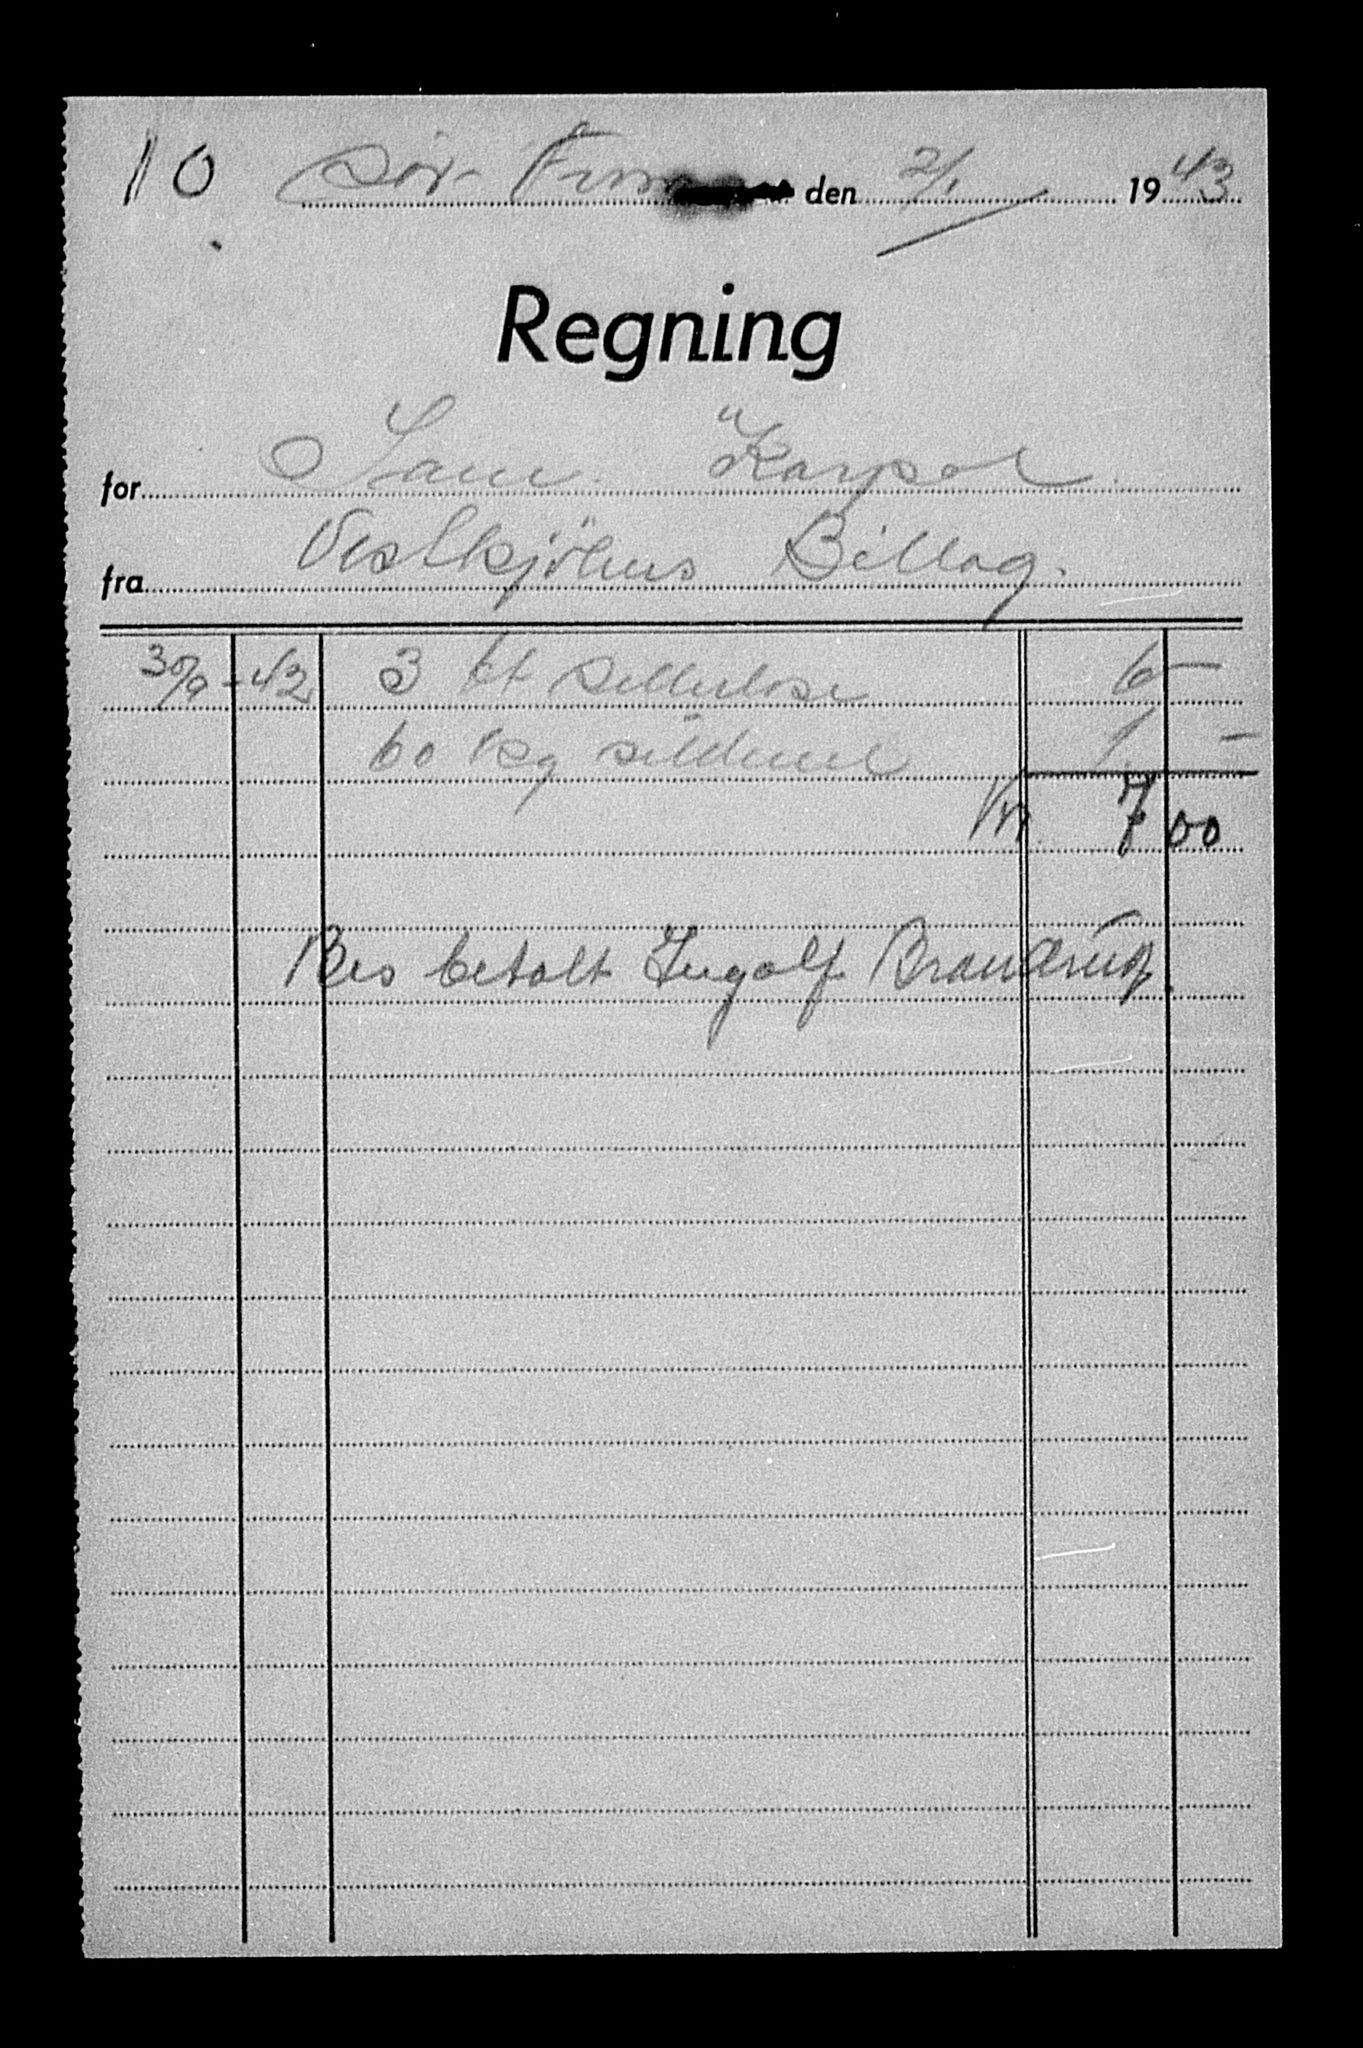 110 Sør-Fron den 2/1 1943
Regning
for Sam Karpol
fra Vestkjölens Billag.
30/9-42 3 kt sellulose 6 —
60 kg sildemel 1. —
Kr. 7 00
Bes betalt Ingolf Brandrud.